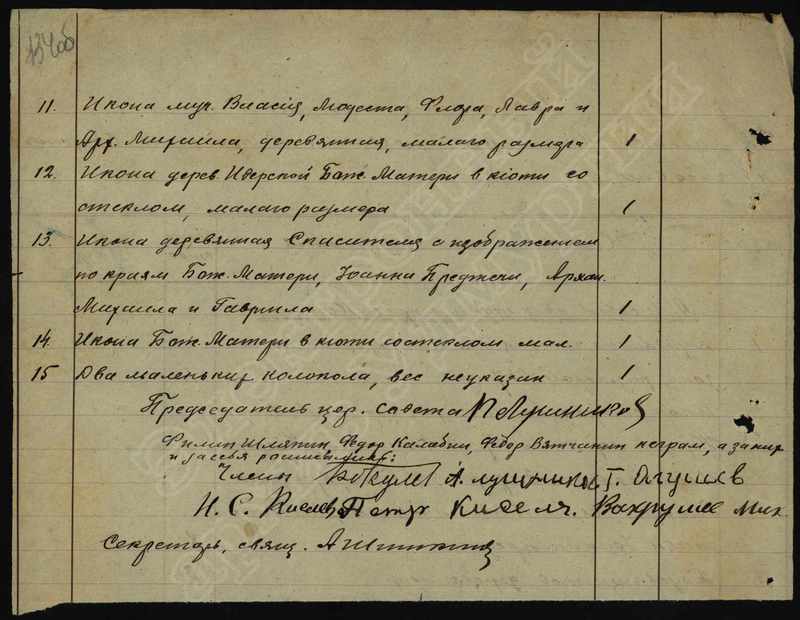 134об
11. Икона муч. Власия, Модеста, Флора, Лавра и
Арх. Михаила, деревянная, малаго размера 1
12. Икона дерев Иверской Бож. Матери в кiоти со
стеклом, малаго размера 1
13. Икона деревянная Спасителя с изображением
по краям Бож. Матери, Iоанна Предтечи, Архан.
Михаила и Гавриила 1
14. Икона Бож. Матери в кiоти со стеклом мал. 1
15 Два маленьких колокола, вес неуказан 1
Председатель цер. совета П Лушников
Филип Шляпин, Федор Калабин, Федор Вятчанин неграм, а за них
и за себя
Члены А. Лушников Г.
И. С. Киселев Петр Киселев. Вахрушев Мих.
Секретарь, свящ. А